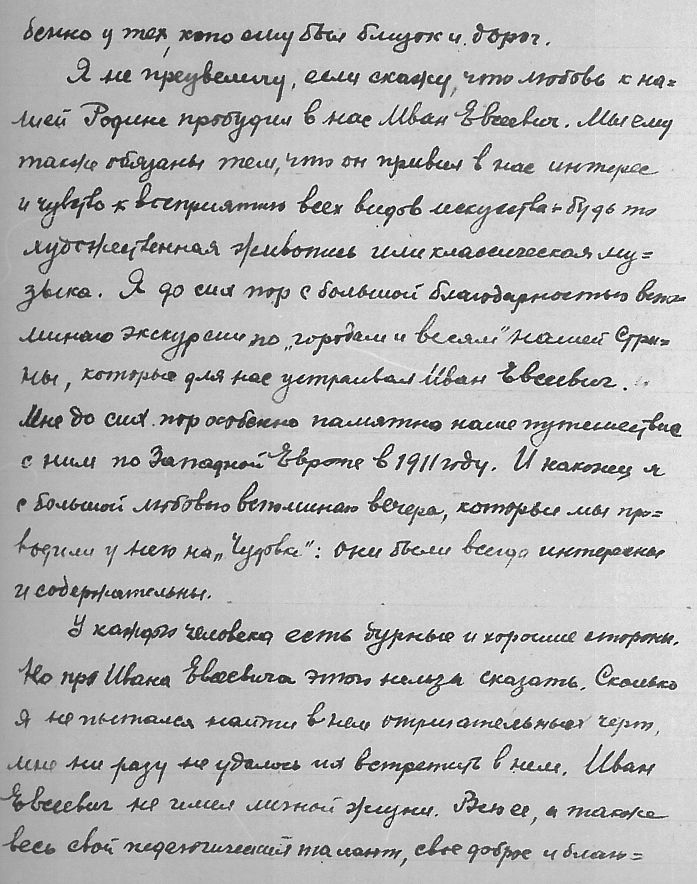 бенно у тех, кто ему был близок и дорог.
Я не преувеличу, если скажу, что любовь к на=
шей Родине пробудил в нас Иван Евсеевич. Мы ему
также обязаны тем, что он привил в нас интерес
и чувство к восприятию всех видов искусства - будь то
художественная живопись или классическая му=
зыка. Я до сих пор с большой благодарностью вспо=
минаю экскурсии по „городам и весям" нашей Стра=
ны, которые для нас устраивал Иван Евсеевич.
Мне до сих пор особенно памятно наше путешествие
с ним по Западной Европе в 1911 году. И наконец я
с большой любовью вспоминаю вечера, которые мы про=
водили у него на „Чудовке": они были всегда интересны
и содержательны.
У каждого человека есть дурные и хорошие стороны.
Но про Ивана Евсеевича этого нельзя сказать. Сколько
я не пытался найти в нем отрицательных черт,
мне ни разу не удалось их встретить в нем. Иван
Евсеевич не имел личной жизни. Всю ее, а также
весь свой педагогический талант, свое доброе и благо=